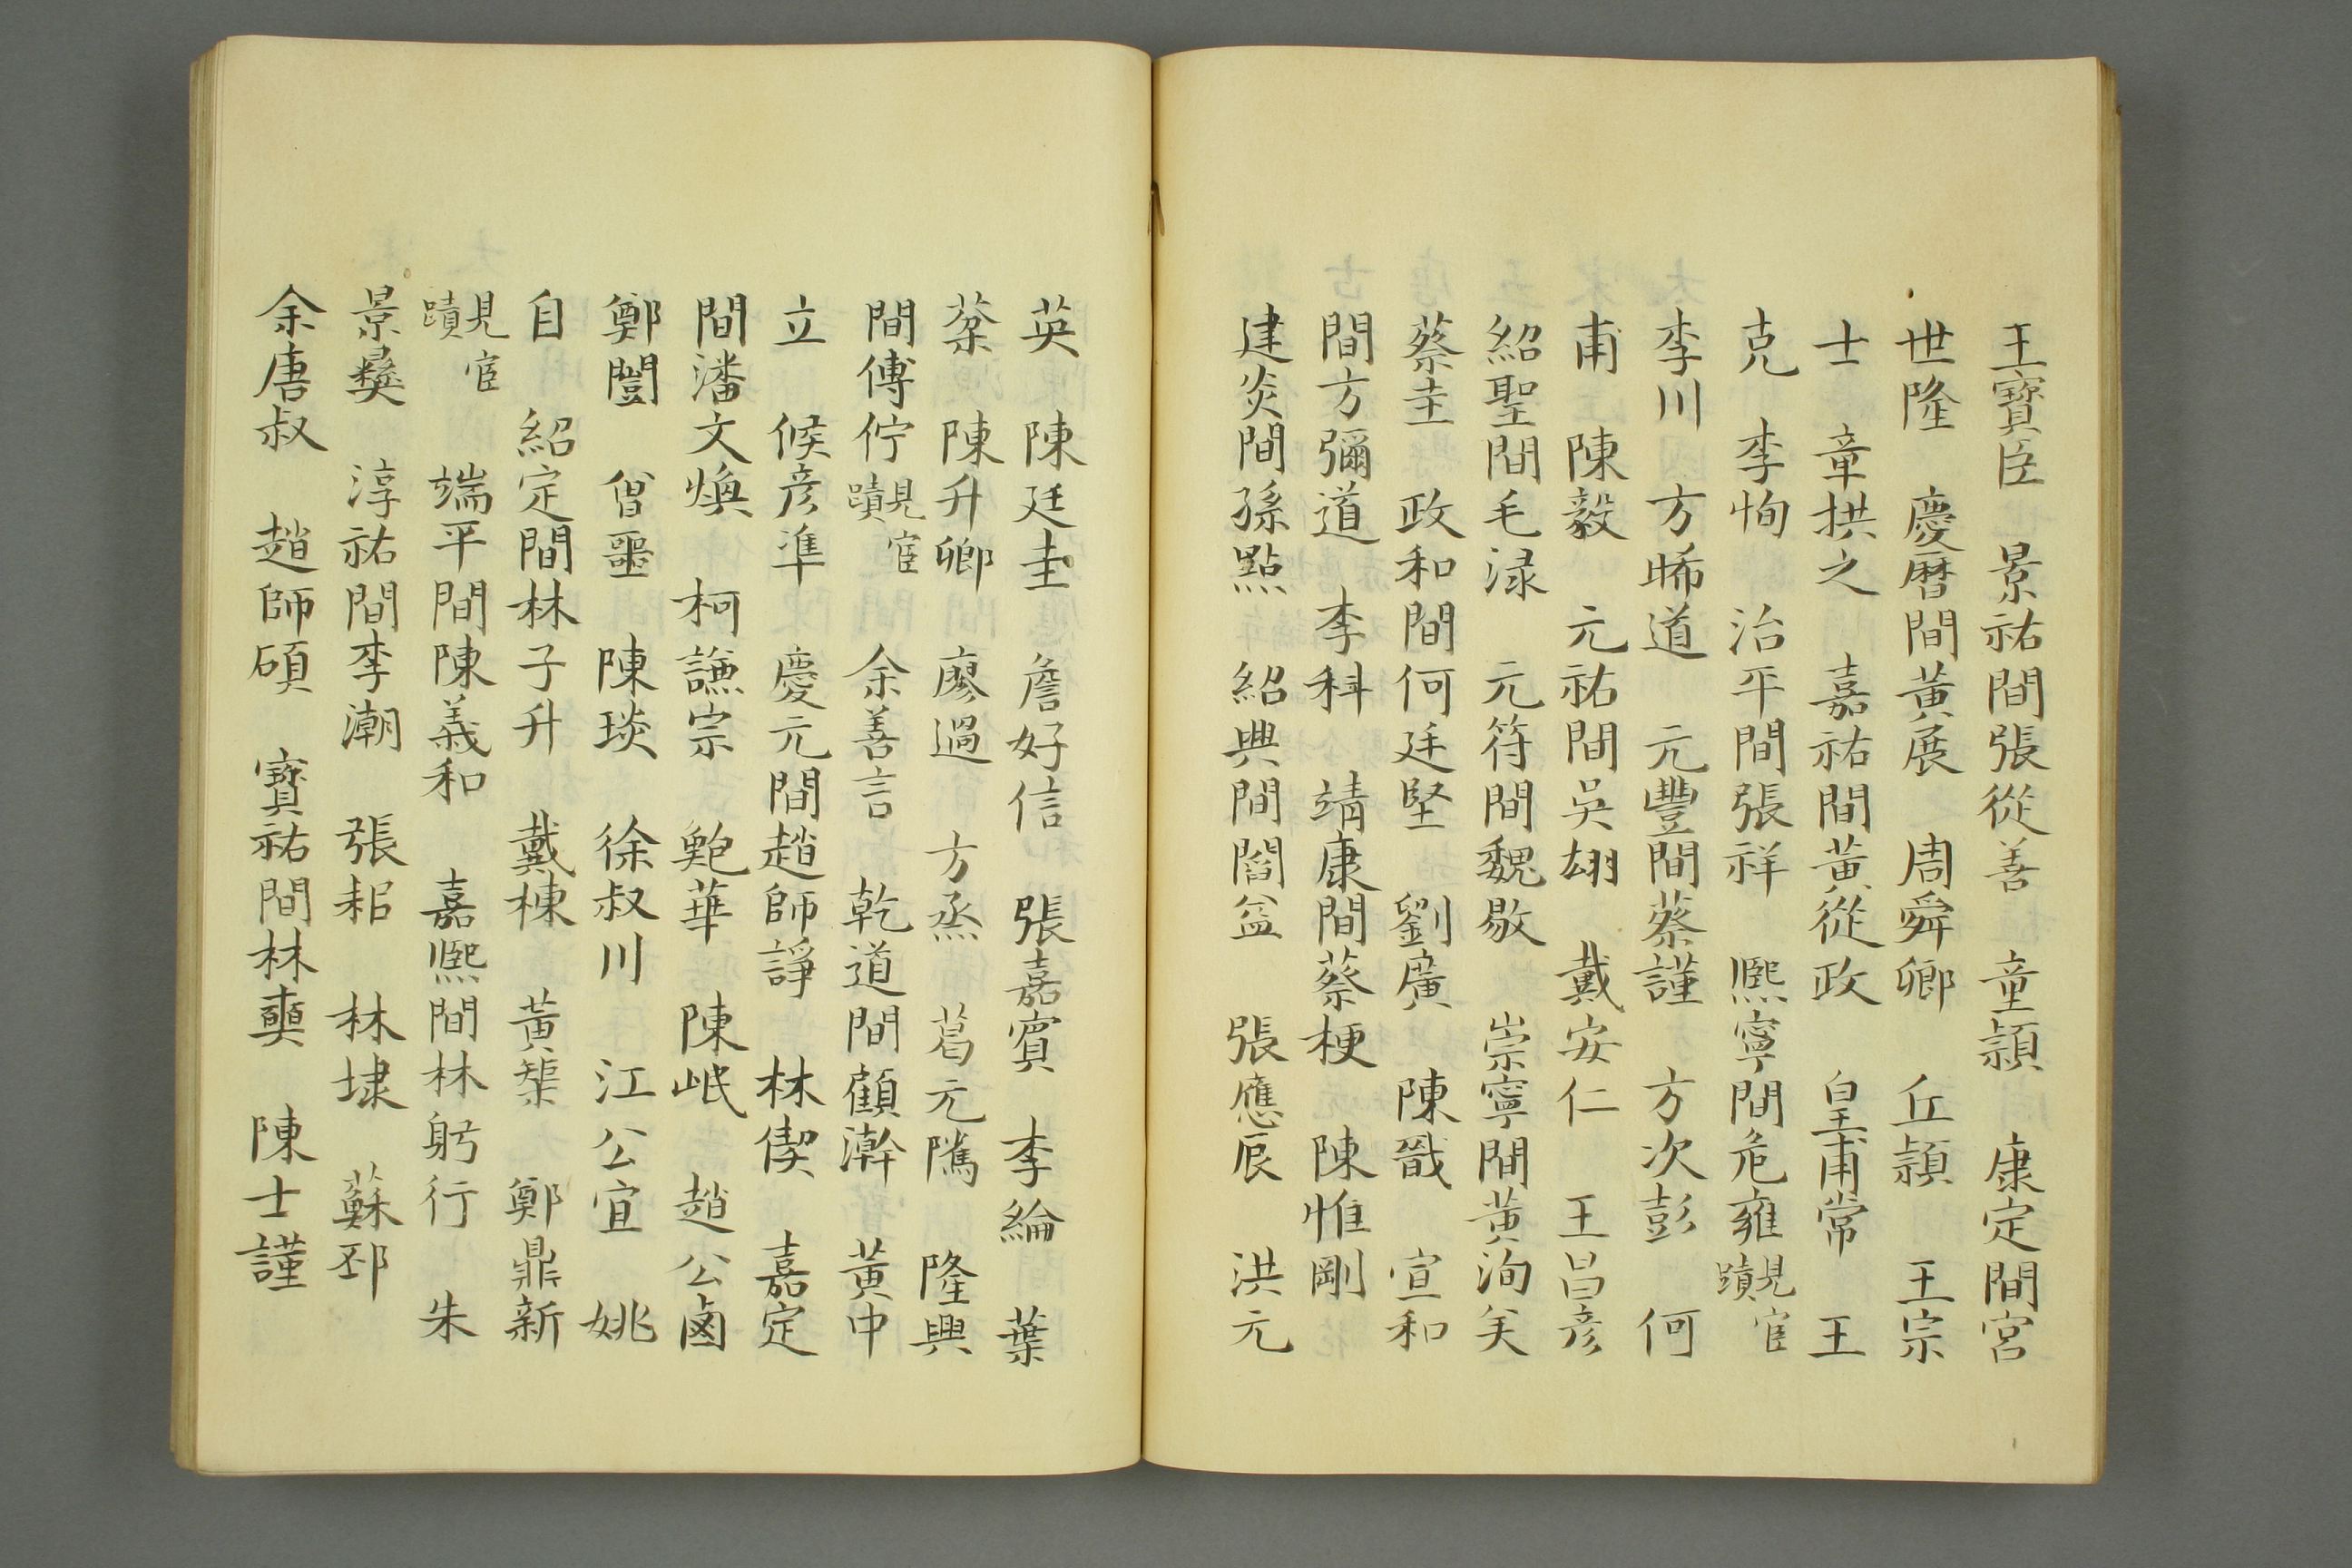 王寶臣　景祐間張從善　童頴　康定間宮
世隆　慶曆間黃展　周舜卿　丘頴　王宗
士　章拱之　嘉祐間黃從政　皇甫常　王
克　李恂　治平間張祥　熙寧間危雍見宦蹟
李川　方晞道　元豐間蔡謹　方次彭　何
甫　陳毅　元祐間吳翃　戴安仁　王昌彥
紹聖間毛淥　元符間魏敭　崇寧間黃洵矣
蔡圭　政和間何廷堅　劉廣　陳戩　宣和
間方彌道　李科　靖康間蔡梗　陳惟剛
建炎間孫點　紹興間閻益　張應辰　洪元
英　陳廷圭　詹好信　張嘉賓　李綸　葉
棻　陳升卿　廖過　方烝　葛元隲　隆興
間傅佇見宦蹟　余善言　乾道間顧澣　黃中
立　候彥準　慶元間趙師諍　林偰　嘉定
間潘文煥　柯謙宗　鮑華　陳岷　趙公鹵
鄭闓　曾噩　陳琰　徐叔川　江公宜　姚
自　紹定間林子升　戴棟　黃榘　鄭鼎新
見宦蹟　端平間陳義和　嘉熙間林躬行　朱
景彝　淳祐間李潮　張耜　林埭　蘇邳
余唐叔　趙師碩　寶祐間林奭　陳士謹